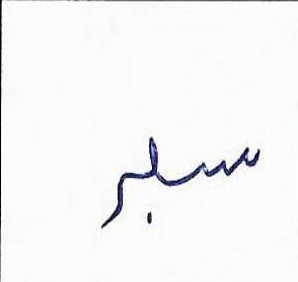 سلبر